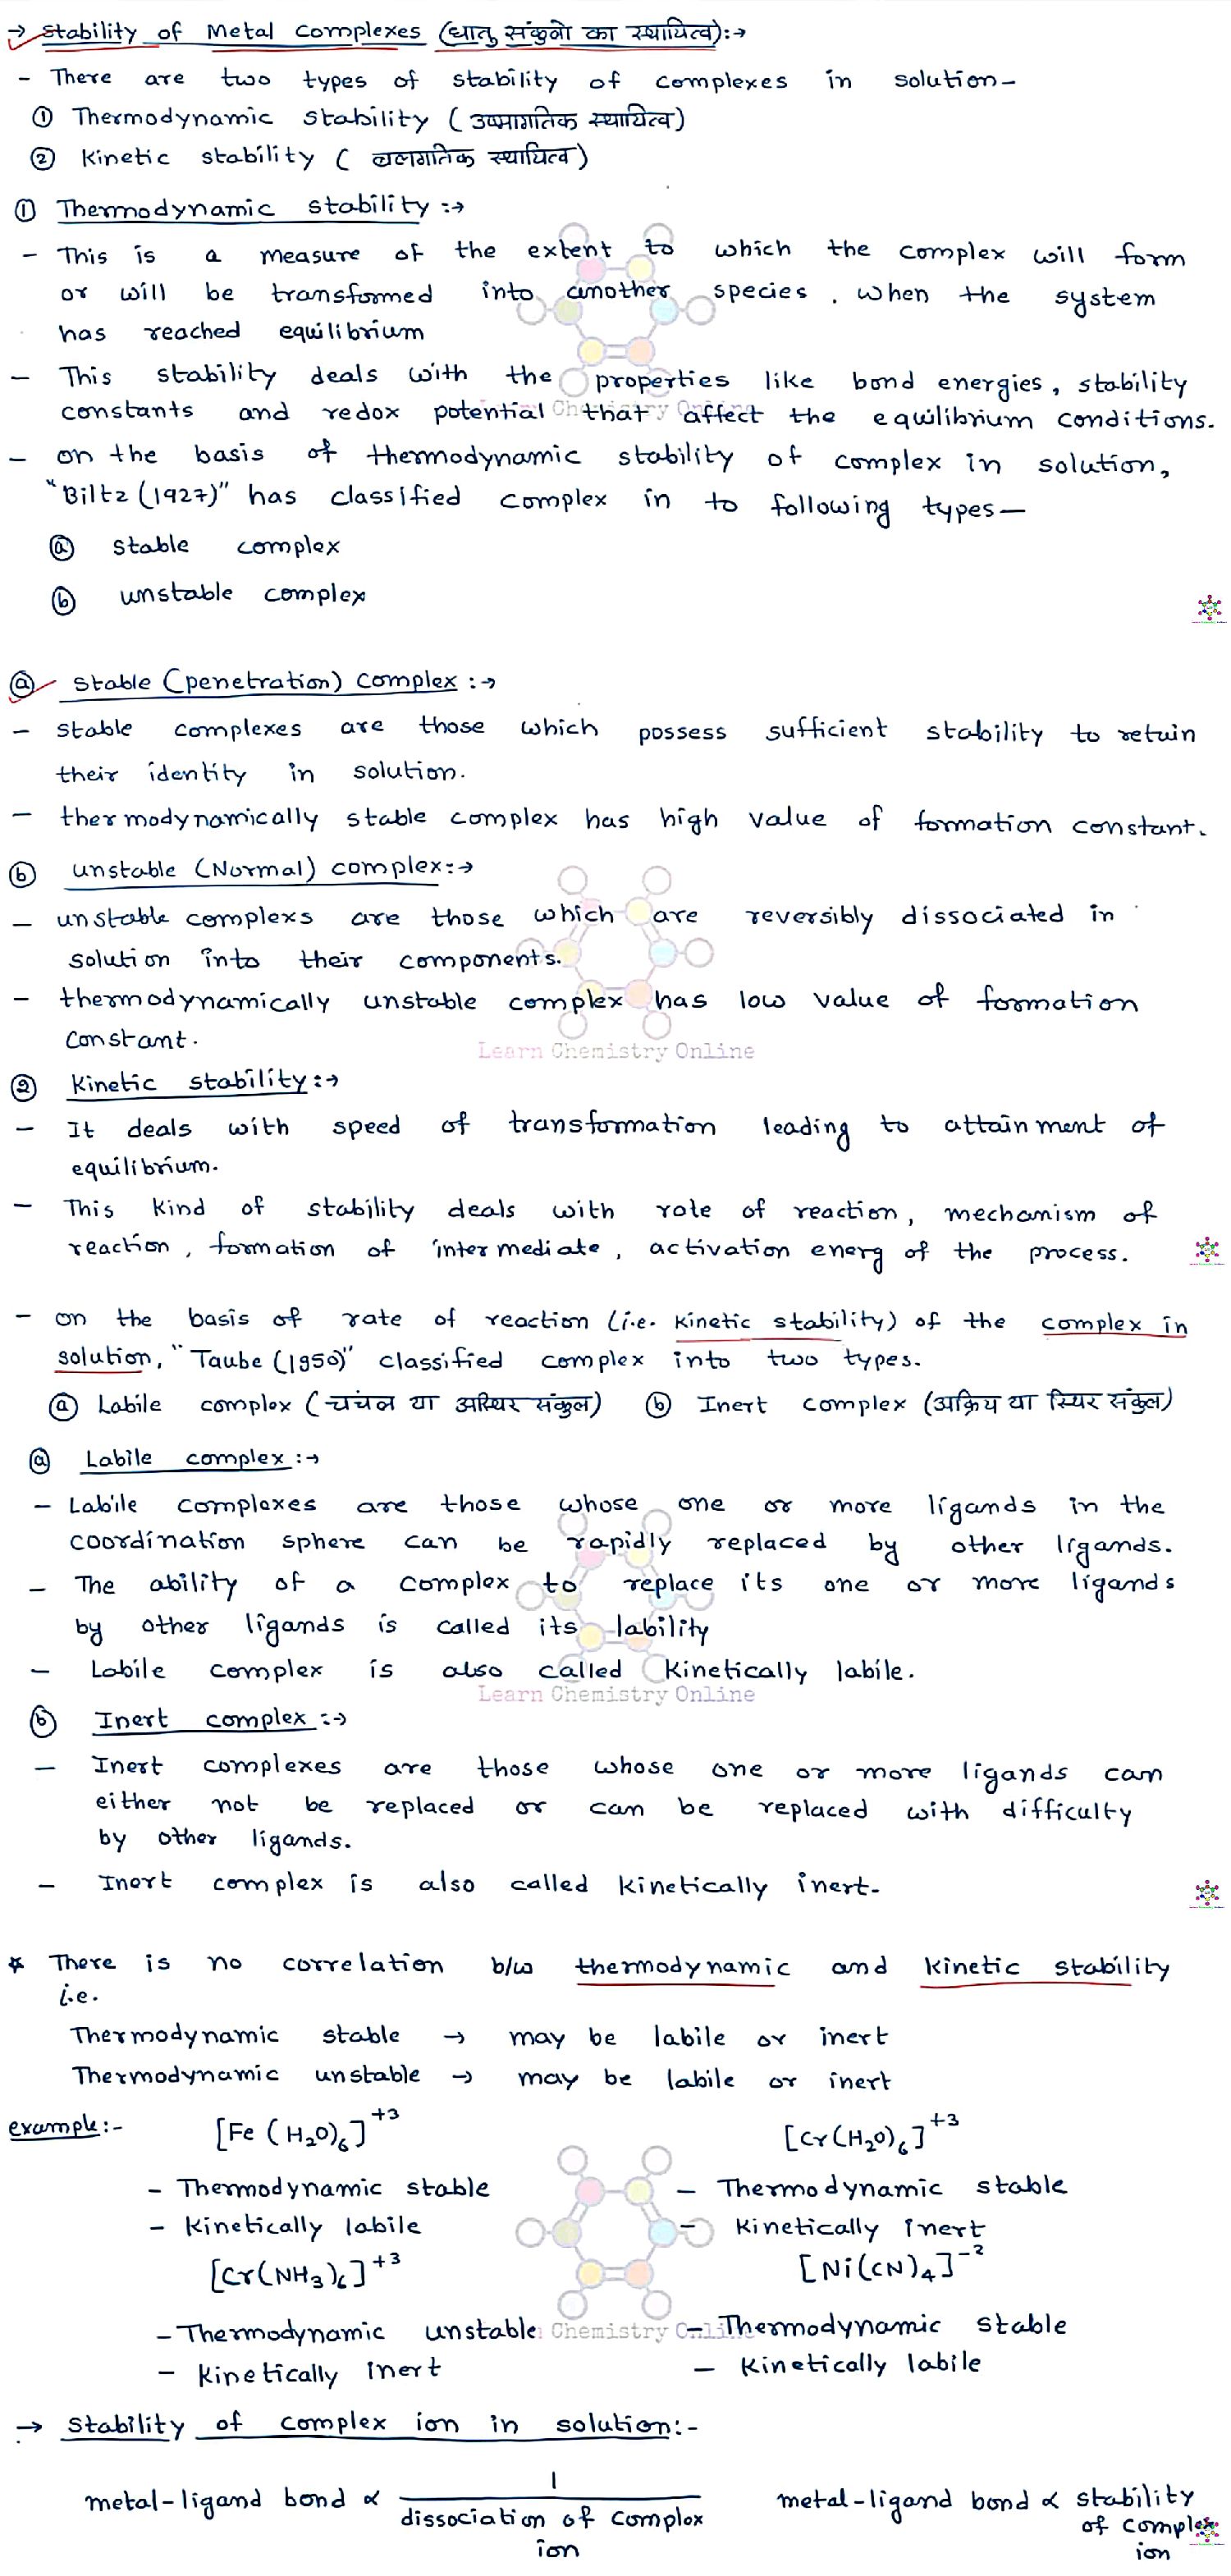 → Stability of Metal complexes (धातु संकुलो का स्थायित्व):→
- There are two types of stability of complexes in solution-
① Thermodynamic stability (उष्मागतिक स्थायित्व)
② Kinetic stability ( बलगतिक स्थायित्व)
① Thermodynamic stability :→
- This is a measure of the extent to which the complex will form
or will be transformed into another species. when the system
has reached equilibrium
- This stability deals with the properties like bond energies, stability
constants and redox potential that affect the equilibrium conditions.
Chemistry Online
- on the basis of thermodynamic stability of complex in solution,
"Biltz (1927)" has classified complex in to following types-
ⓐ stable complex
ⓑ unstable complex
ⓐ stable (penetration) complex :→
- stable complexes are those which possess sufficient stability to retain
their identity in solution.
- thermodynamically stable complex has high value of formation constant.
ⓑ unstable (Normal) complex:→
- unstable complexs are those which are reversibly dissociated in
solution into their components.
- thermodynamically unstable complex has low value of formation
constant.
Learn Chemistry Online
② Kinetic stability:→
- It deals with speed of transformation leading to attainment of
equilibrium.
- This kind of stability deals with rate of reaction, mechanism of
reaction, formation of intermediate, activation energ of the process.
- on the basis of rate of reaction (i.e. Kinetic stability) of the complex in
solution, "Taube (1950)" classified complex into two types.
ⓐ Labile complex (चंचल या अस्थिर संकुल) ⓑ Inert complex (अक्रिय या स्थिर संकुल)
ⓐ Labile complex :→
- Labile complexes are those whose one or more ligands in the
coordination sphere can be rapidly replaced by other ligands.
- The ability of a complex to replace its one or more ligands
by other ligands is called its lability
- Labile complex is also called Kinetically labile.
Learn Chemistry Online
ⓑ Inert complex :→
- Inert complexes are those whose one or more ligands can
either not be replaced or can be replaced with difficulty
by other ligands.
- Inert complex is also called Kinetically inert.
* There is no correlation b/w thermodynamic and kinetic stability
i.e.
Thermodynamic stable → may be labile or inert
Thermodynamic unstable → may be labile or inert
example:- [Fe(H₂O)₆]⁺³ [Cr(H₂O)₆]⁺³
- Thermodynamic stable - Thermodynamic stable
- Kinetically labile - Kinetically inert
[Cr(NH₃)₆]⁺³ [Ni(CN)₄]⁻²
- Thermodynamic unstable - Thermodynamic stable
Chemistry Online
- Kinetically inert - Kinetically labile
→ Stability of complex ion in solution:-
metal-ligand bond ∝ 1 / dissociation of complex ion metal-ligand bond ∝ stability of complex ion